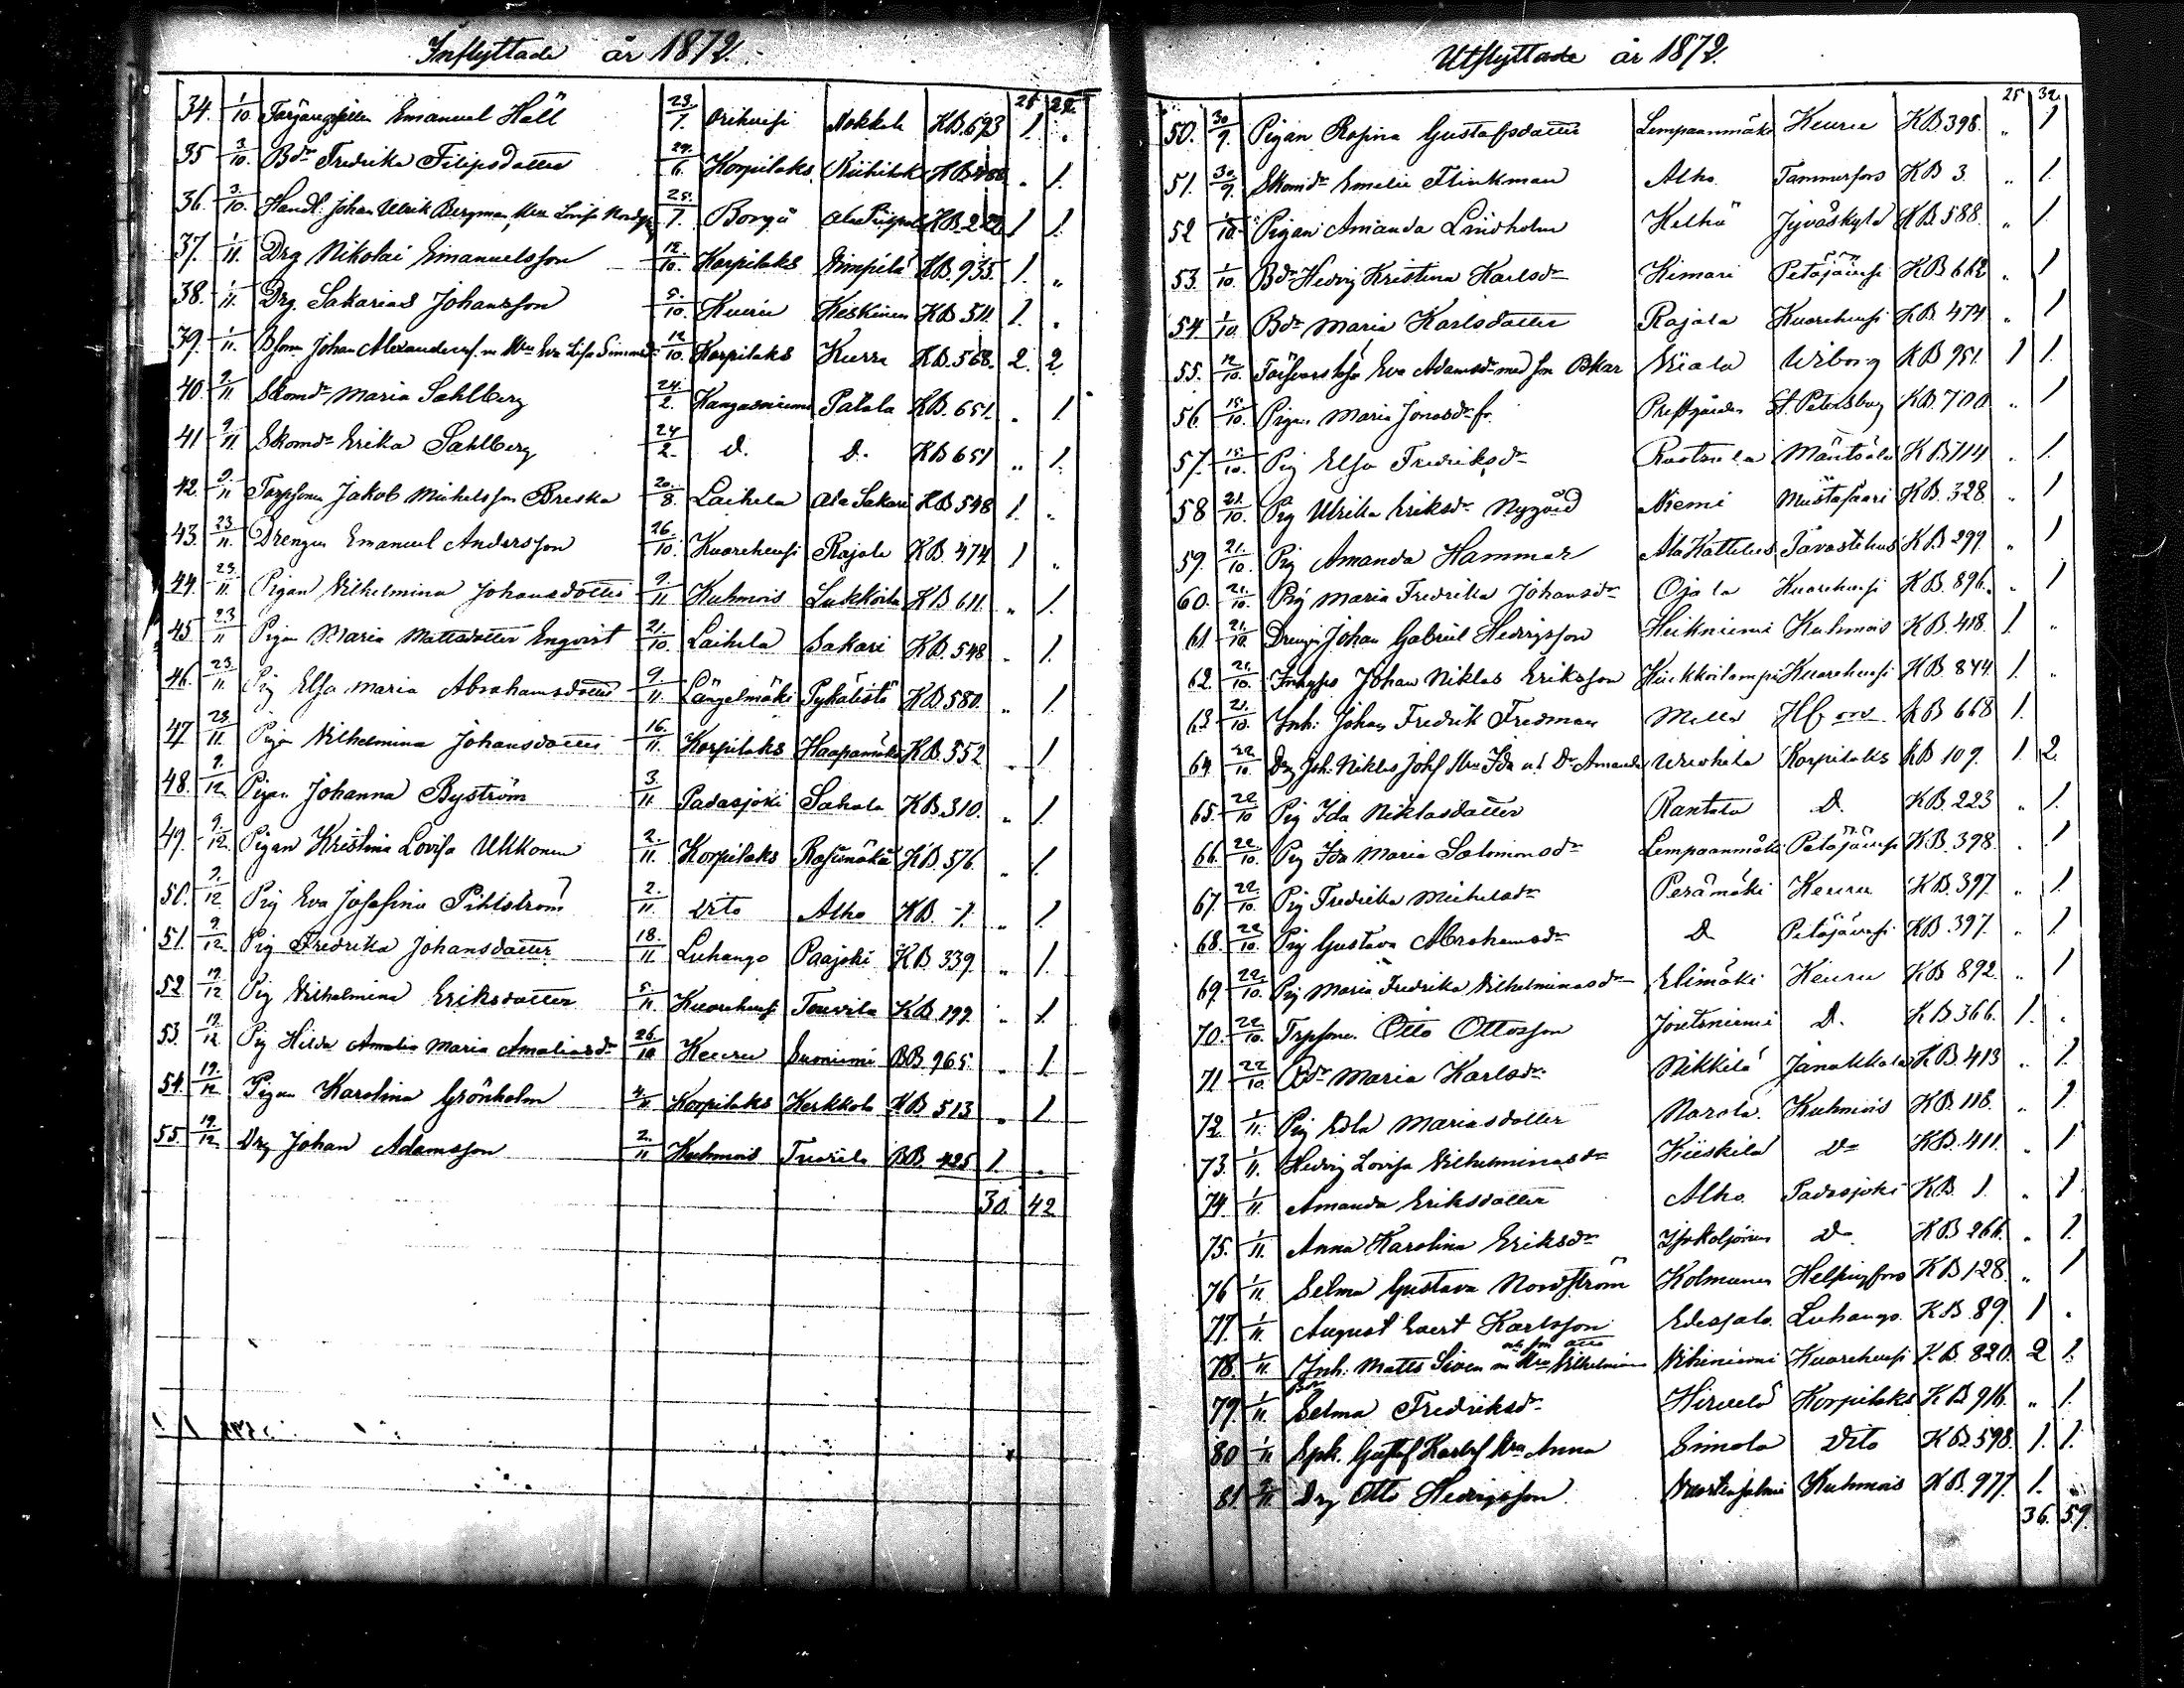 Inflyttade år 1872.
21 22.
34. 1/10. Emanuel Häll 23./7. Orihvesi Nokkola KB.693 1. „
35 3/10. Bdr Fredrika Filipsdotter 29./6. Korpilaks KB „ 1.
36. 3/10. Handl. Johan Ulrik Bergman, Hru Lovisa 25./7. Borgå KB. 222 1 1.
37. 1/11. Drg Nikolai Emanuelsson 12./10. Korpilaks KB. 935. 1. „
38. 1/11. Drg. Sakarias Johansson 5./10. Keuru Keskinen KB 511. 1. „
39. 1/11. Johan Alexandersf. m Hru Eva Lisa Simonsdr 12/10. Korpilaks Kurra KB. 568. 2. 2.
40. 9/11. Skomdr Maria Sahlberg 24./2. Kangasniemi Patala KB. 651. „ 1.
41 9/11. Skomdr Erika Sahlberg 24/2. d. d. KB 651 „ 1.
42. 9/11 Jakob Michelsson Breska 20./8. Laihela Ala Sakari KB 548 1. „
43. 23/11. Drengen Emanuel Andersson 26./10. Kuorehvesi Rajala KB. 474 1 „
44. 23./11. Pigan Vilhelmina Johansdotter 9./11. Kuhmois Lukkoila KB 611. „ 1.
45 23/11 Pigan Maria Mattsdotter Engvist 21./10. Laihela Sakari KB. 548 „ 1.
46. 23./11. Pig Elsa Maria Abrahamsdotter 9./11. Längelmäki Pykälistö KB 580. „ 1.
47 23./11. Pigan Vilhelmina Johansdotter 16./11. Korpilaks Haapamäki KB. 552 „ 1
48. 9./12. Pigan Johanna Byström 3./11. Padasjoki Sahala KB. 310. „ 1.
49. 9./12. Pigan Kristina Lovisa Ukkonen 2./11. Korpilaks KB. 576. „ 1.
50. 9./12 Pig Eva Josefina Pihlström 2./11. Dito Alho KB. 1. „ 1.
51. 9./12. Pig Fredrika Johansdotter 18./11. Luhango Paajoki KB 339. „ 1.
52 19./12 Pig Vilhelmina Eriksdotter 5./11. Kuorehvesi Touvila KB. 199. „ 1.
53. 19./12 Pig Hilda Amalia Maria Amaliasdr 26./10 Keuru Suoniemi BB 965. „ 1.
54. 19./12 Pigan Karolina Grönholm 4./11. Korpilaks Kerkkola KB 513 „ 1
55. 19./12. Drg Johan Adamsson 2./11 Kuhmois Tuorila BB 425 1. „
30. 42
Utflyttade år 1872.
25 32.
50. 30/9. Pigan Rosina Gustafsdotter Lempaanmäki Keuru KB 398. „ 1
51. 30/9. Skomdr Emelie Flinkman Alho Tammerfors KB 3. „ 1.
52 1/10. Pigan Amanda Lindholm Kelhä Jyväskylä KB. 588. „ 1.
53. 1/10. Bdr Hedvig Kristina Karlsdr Kimari Petäjävesi KB 662 „ 1
54. 1/10. Bdr Maria Karlsdotter Rajala Kuorehvesi KB 474 „ 1
55. 12/10. Eva Adamsdr med son Oskar Wiala Wiborg KB 951. 1 1.
56. 15./10. Pigan Maria Jonasdr fr. Prestgården St. Petersburg KB. 700 „ 1
57. 15./10. Pig Elsa Fredriksdr Rastula Mäntsälä KB. 714 „ 1.
58 21./10. Pig Ulrika Eriksdr Nygård Niemi Mustasaari KB. 328. „ 1
59. 21./10. Pig Amanda Hammar Ala Kattelus Tavastehus KB 299. „ 1
60. 21./10. Pig Maria Fredrika Johansdr Ojala Kuorehvesi KB. 896. „ 1
61. 21./10. Drengen Johan Gabriel Hedvigsson Heikniemi Kuhmois KB. 418. 1. „
62. 21./10. Johan Niklas Eriksson Kuorehvesi KB. 844. 1. „
63. 21./10. Inh. Johan Fredrik Fredman KB 668 1.
64 22/10. Drg Joh. Niklas Johsf Hru Ida o. Dr Amanda Korpilaks KB 109. 1 2.
65. 22/10 Pig Ida Niklasdotter Rantala D. KB. 223 „ 1.
66. 22/10. Pig Ida Maria Salomonsdr Lempaanmäki Petäjävesi KB. 398. „ 1
67. 22./10. Pig Fredrika Michelsdr Perämäki Keuru KB. 397. „ 1.
68. 22/10. Pig Gustava Abrahamsdr D Petäjävesi KB. 397. „ 1
69. 22/10. Pig Maria Fredrika Vilhelminasdr Elimäki Keuru KB 892. „ 1
70. 22/10. Trpson. Otto Ottosson Joutsniemi D. KB 366. 1. „
71 22/10. Bdr Maria Karlsdr Nikkilä Janakkala KB 413 „ 1.
72. 1/11. Pig Edla Mariasdotter Narola Kuhmois KB. 118. „ 1.
73. 1/11. Hedvig Lovisa Vilhelminasdr Kiiskilä Do KB. 411. „ 1
74. 1/11. Amanda Eriksdotter Alho Padasjoki KB. 1. „ 1
75. 1/11. Anna Karolina Eriksdr Do KB 266. „ 1.
76 1/11. Selma Gustava Nordström Kolmanen Helsingfors KB 128. „ 1
77. 1/11. August Evert Karlsson Edesjalo Luhango KB. 89. 1 „
78. 1/11. Inh. Matts Siven m Hru Vilhelmina och son Kuorehvesi KB. 820. 2 1.
79. 1/11. Bdr Selma Fredriksdr Hirvelä Korpilaks KB 916. „ 1.
80 1/11 Spk. Gustaf Karlsf Hru Anna Simola Dito KB. 598. 1. 1.
81. Drg Otto Hedvigsson Kuhmois KB. 977. 1. „
36. 59.